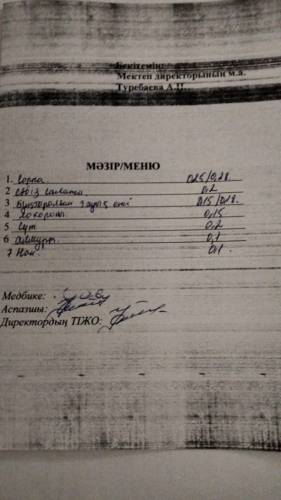 Бекітемін:
Мектеп директорының м.а.
Туребаева А.П.
МӘЗІР/МЕНЮ
1. Сорпа 0,25/0,28
2 сәбіз салаты. 0,2
3 тауық еті
4 Макарон. 0,15
5 Сүт 0,2
6 алмұрт. 0,1
7 Нан. 0,1
Медбике:
Аспазшы:
Директордың ТІЖО: